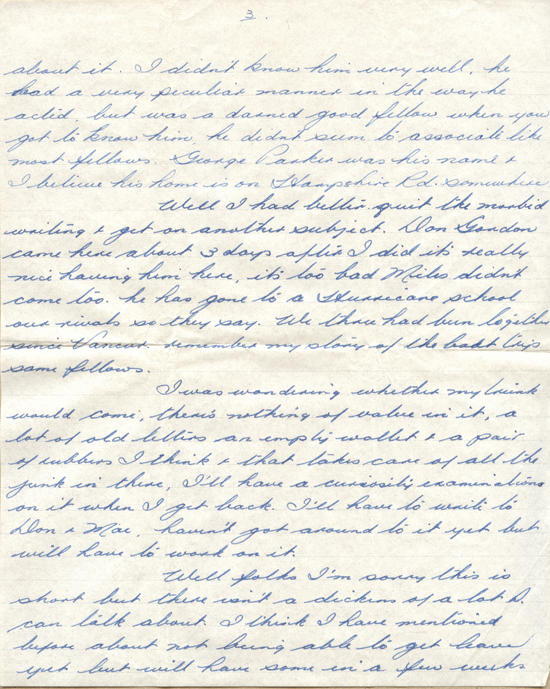 3.
about it. I didn't know him very well, he
had a very peculiar manner in the way he
acted, but was a darned good fellow when you
got to know him, he didnt seem to associate like
most fellows. George Parker was his name &
I believe his home is on Hampshire Rd. somewhere
Well I had better quit the morbid
writing & get on another subject. Don Gordon
came here about 3 days after I did it's really
nice having him here, it's too bad Miles didnt
come too. he has gone to a Hurricane school
our rivals so they say. We three had been together
since Vancouv. remember my story of the boat trip
same fellows.
I was wondering whether my trunk
would come, there's nothing of value in it, a
lot of old letters an empty wallet & a pair
of rubbers I think & that takes care of all the
junk in there, I'll have a curiosity examinations
on it when I get back. I'll have to write to
Don & Mae, haven't got around to it yet but
will have to work on it.
Well folks I'm sorry this is
short but there isn't a dickens of a lot I
can talk about. I think I have mentioned
before about not being able to get leave
yet but will have some in a few weeks